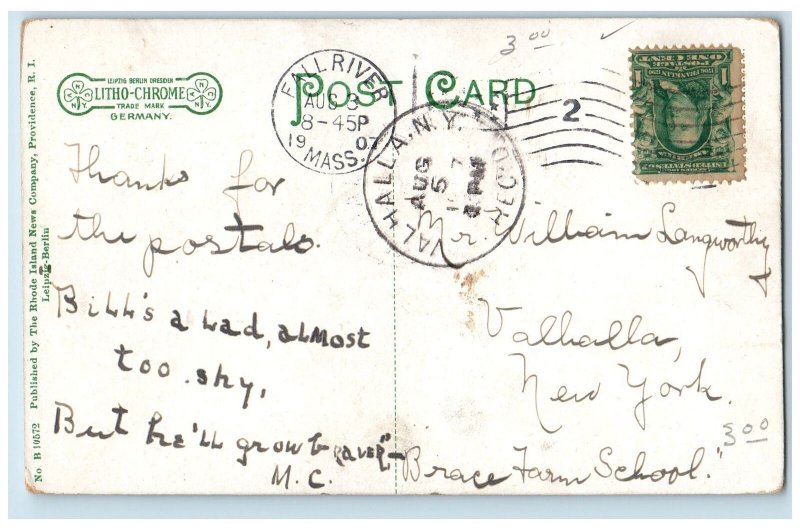 3 00
LEIPZIG BERLIN DRESDEN
LITHO-CHROME
TRADE MARK
GERMANY.
POST CARD
FALL RIVER
AUG 3
8-45P
1907
MASS.
2
VALHALLA. N.Y.
AUG
5
4 PM
REC'D.
Thanks for
the postals.
Bill's a lad, almost
too shy,
But he'll grow braver,"-
M. C.
Mr. William Langworthy
Valhalla,
New York.
3 00
"Brace Farm School."
No B 10572 Published by The Rhode Island News Company, Providence, R. I.
Leipzig-Berlin